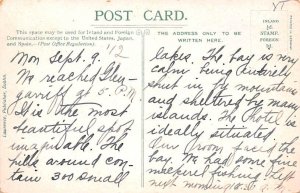 POST CARD.
This space may be used for Inland and Foreign
Communication except to the United States, Japan,
and Spain.—(Post Office Regulation).
THE ADDRESS ONLY TO BE
WRITTEN HERE.
INLAND
½d
STAMP.
FOREIGN
Mon Sept. 9. '12
We reached Glen-
garriff at 5 P.M.
It is the most
beautiful spot
imaginable. The
hills around con-
tain 300 small
lakes. The bay is very
calm being entirely
shut in by mountains
and sheltered by many
islands. The hotel is
ideally situated.
Our room faced the
bay. We had some fine
mackerel fishing. Left
next morning